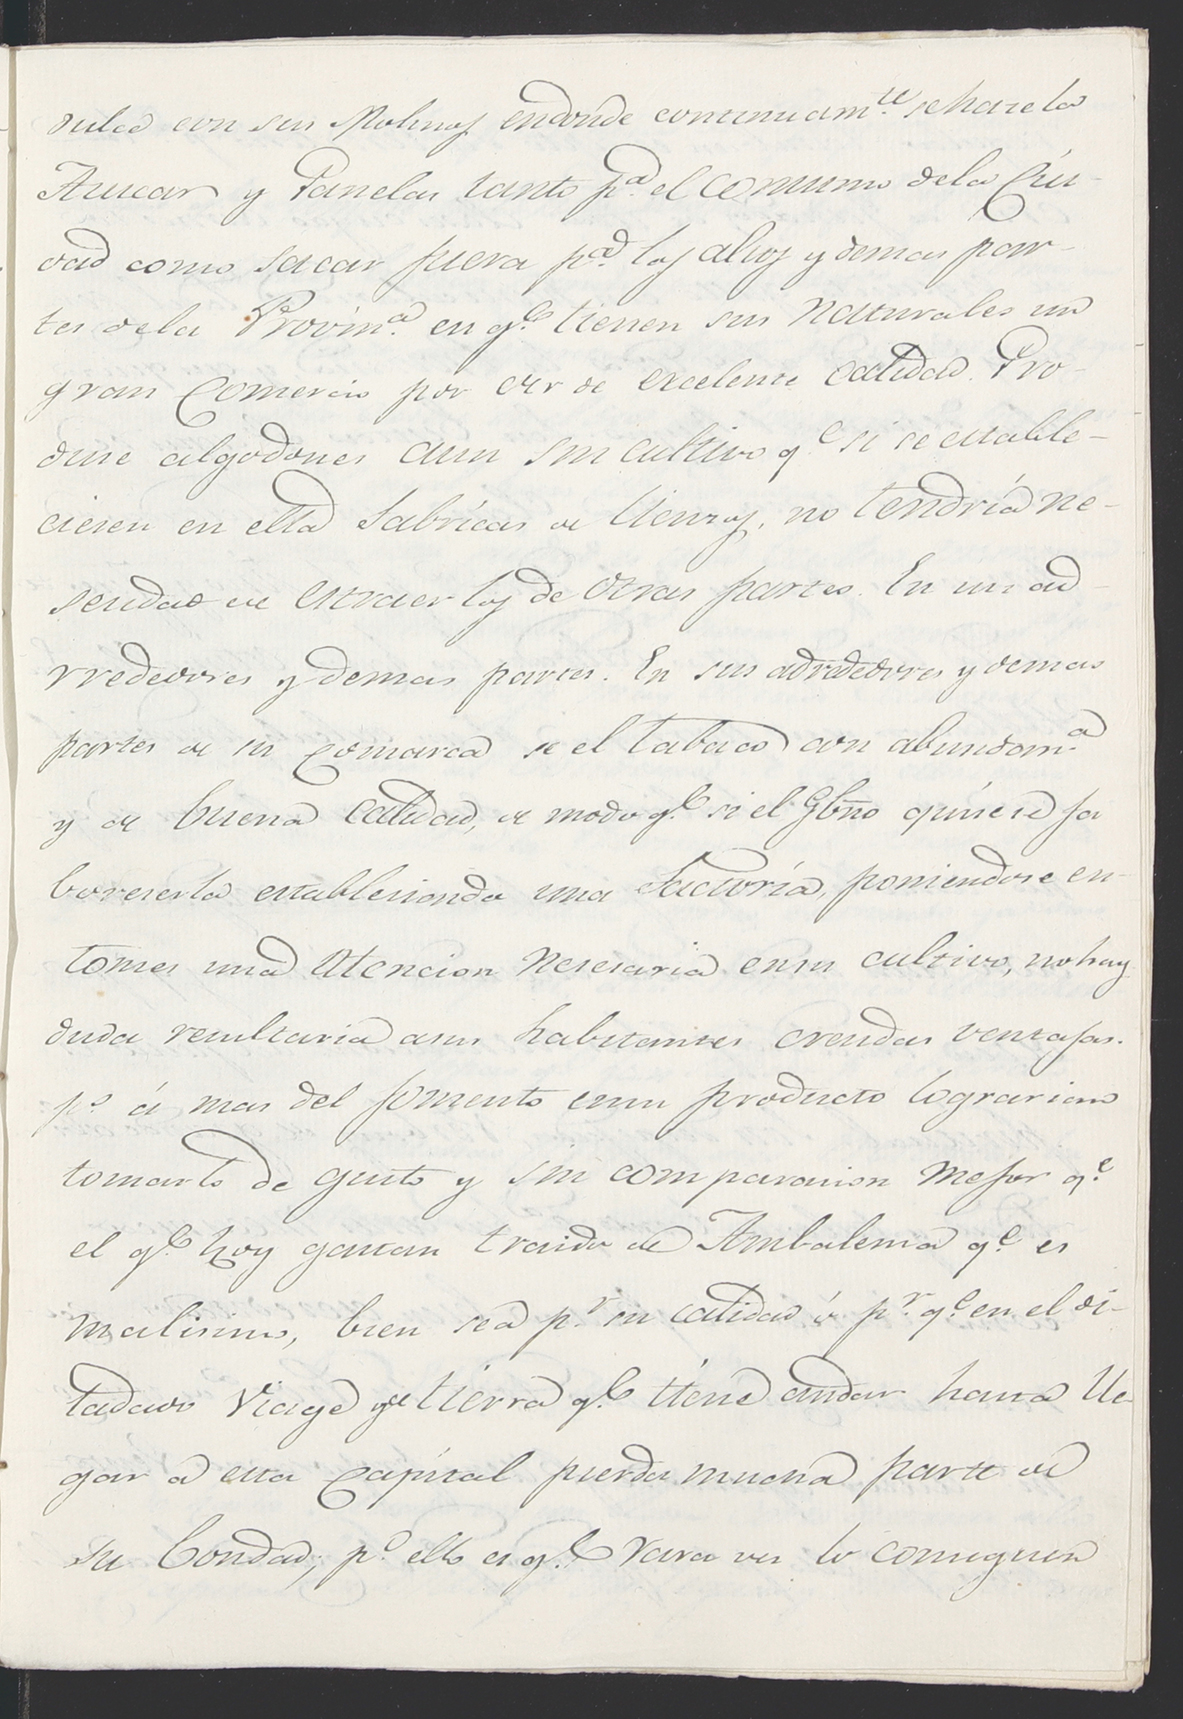 dulce con sus Molinos endonde continuamte. sehase la
Azucar y Panelas tanto pa. el comumo dela Ciu-
dad como sacar fuera pa. los altos y demas par-
tes dela Provina. en qe. tienen sus naturales un
gran Comercio por ser de excelente calidad. Pro-
duse algodones aun sin cultivo qe si se estable-
ciesen en ella fabricas de lienzos, no tendria ne-
sesidad de estraerlos de otras partes. En sus ad-
rrededores y demas partes. En sus adrededores y demas
partes de su comarca se el tabaco con abundana
y de buena calidad, de modo qe. si el Gbno quisiese fa
boreserla establesiendo una factoria, poniendose en-
tonses una atencion nesesaria ensu cultivo, no hay
duda resultaria asus habitantes cresidas ventajas.
ps. á mas del fomento ensu producto lograrian
tomarlo de gusto y sin comparasion mejor qe.
el qe. hoy gastan traido de Ambalema qe. es
malisimo, bien sea pr. su calidad ó pr. qe. en el di-
tadado viage de tierra qe. tiene andar hasta lle-
gar a esta capital pierda mucha parte de
su bondad; po. ello es qe. rara ves lo consiguen